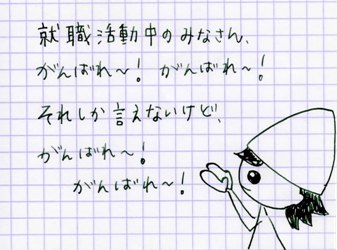 就職活動中のみなさん、
がんばれ～！ がんばれ～！
それしか言えないけど、
がんばれ～！
がんばれ～！